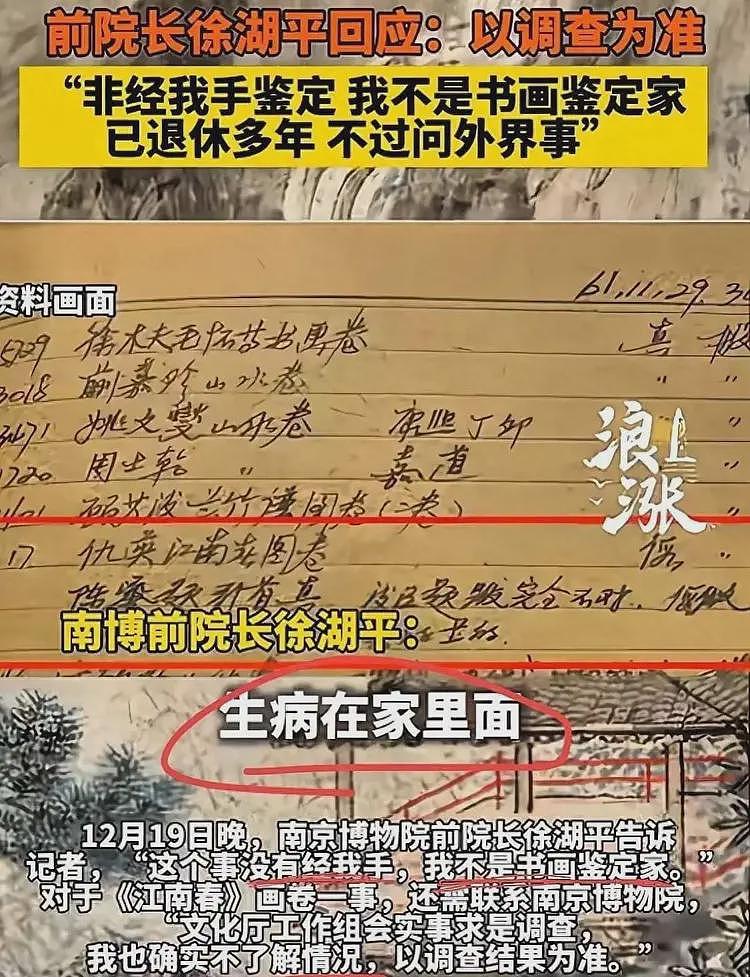 前院长徐湖平回应：以调查为准
“非经我手鉴定 我不是书画鉴定家
已退休多年 不过问外界事”
资料画面
61.11.29.
5729 徐木夫毛怀昔书画卷 真
3018 山水卷 〃 〃
3471 姚文燮山水卷 康熙丁卯 〃 〃
1720 周士乾 〃 嘉道 〃
兰竹 图卷（二卷）
17 仇英江南春图卷 伪 〃
完全不对
浪上涨
南博前院长徐湖平：
生病在家里面
12月19日晚，南京博物院前院长徐湖平告诉
记者，“这个事没有经我手，我不是书画鉴定家。”
对于《江南春》画卷一事，还需联系南京博物院，
“文化厅工作组会实事求是调查，
我也确实不了解情况，以调查结果为准。”